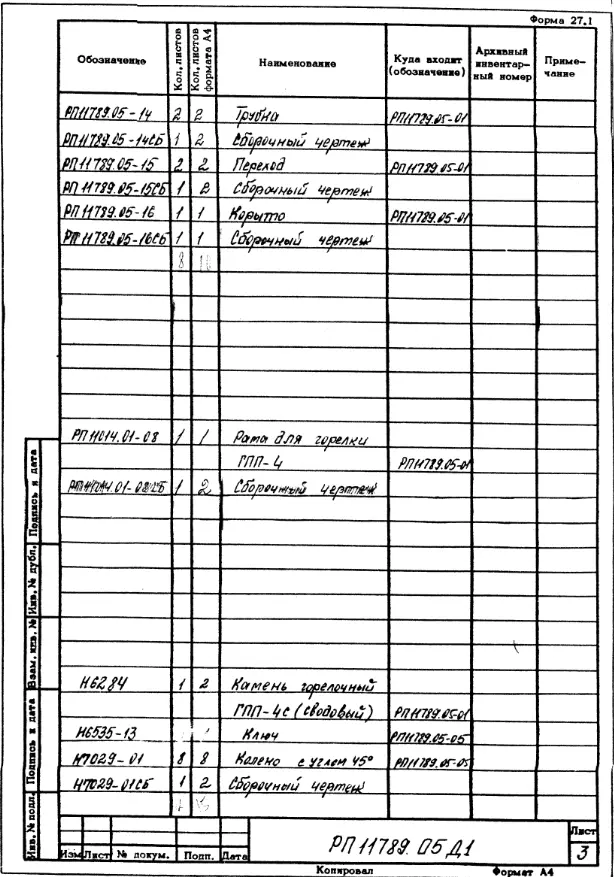 Форма 27.1
Обозначение Кол. листов Кол. листов формата А4 Наименование Куда входит (обозначение) Архивный инвентарный номер Примечание
РП11789.05-14 2 2 Трубка РП11789.05-01
РП11789.05-14СБ 1 2 Сборочный чертеж
РП11789.05-15 2 2 Переход РП11789.05-01
РП11789.05-15СБ 1 2 Сборочный чертеж
РП11789.05-16 1 1 Корыто РП11789.05-01
РП11789.05-16СБ 1 1 Сборочный чертеж
8
РП11014.01-08 1 1 Рама для горелки
ГПП-4 РП11789.05-01
РП11014.01-08СБ 1 2 Сборочный чертеж
Н6284 1 2 Камень горелочный
ГПП-4с (сводовый) РП11789.05-01
Н6535-13 Ключ РП11789.05-05
Н7029-01 8 8 Колено с углом 45° РП11789.05-05
Н7029-01СБ 1 2 Сборочный чертеж
Инв. № подл. Подпись и дата Взам. инв. № Инв. № дубл. Подпись и дата
РП11789.05Д1
Лист
3
Изм Лист № докум. Подп. Дата
Копировал Формат А4